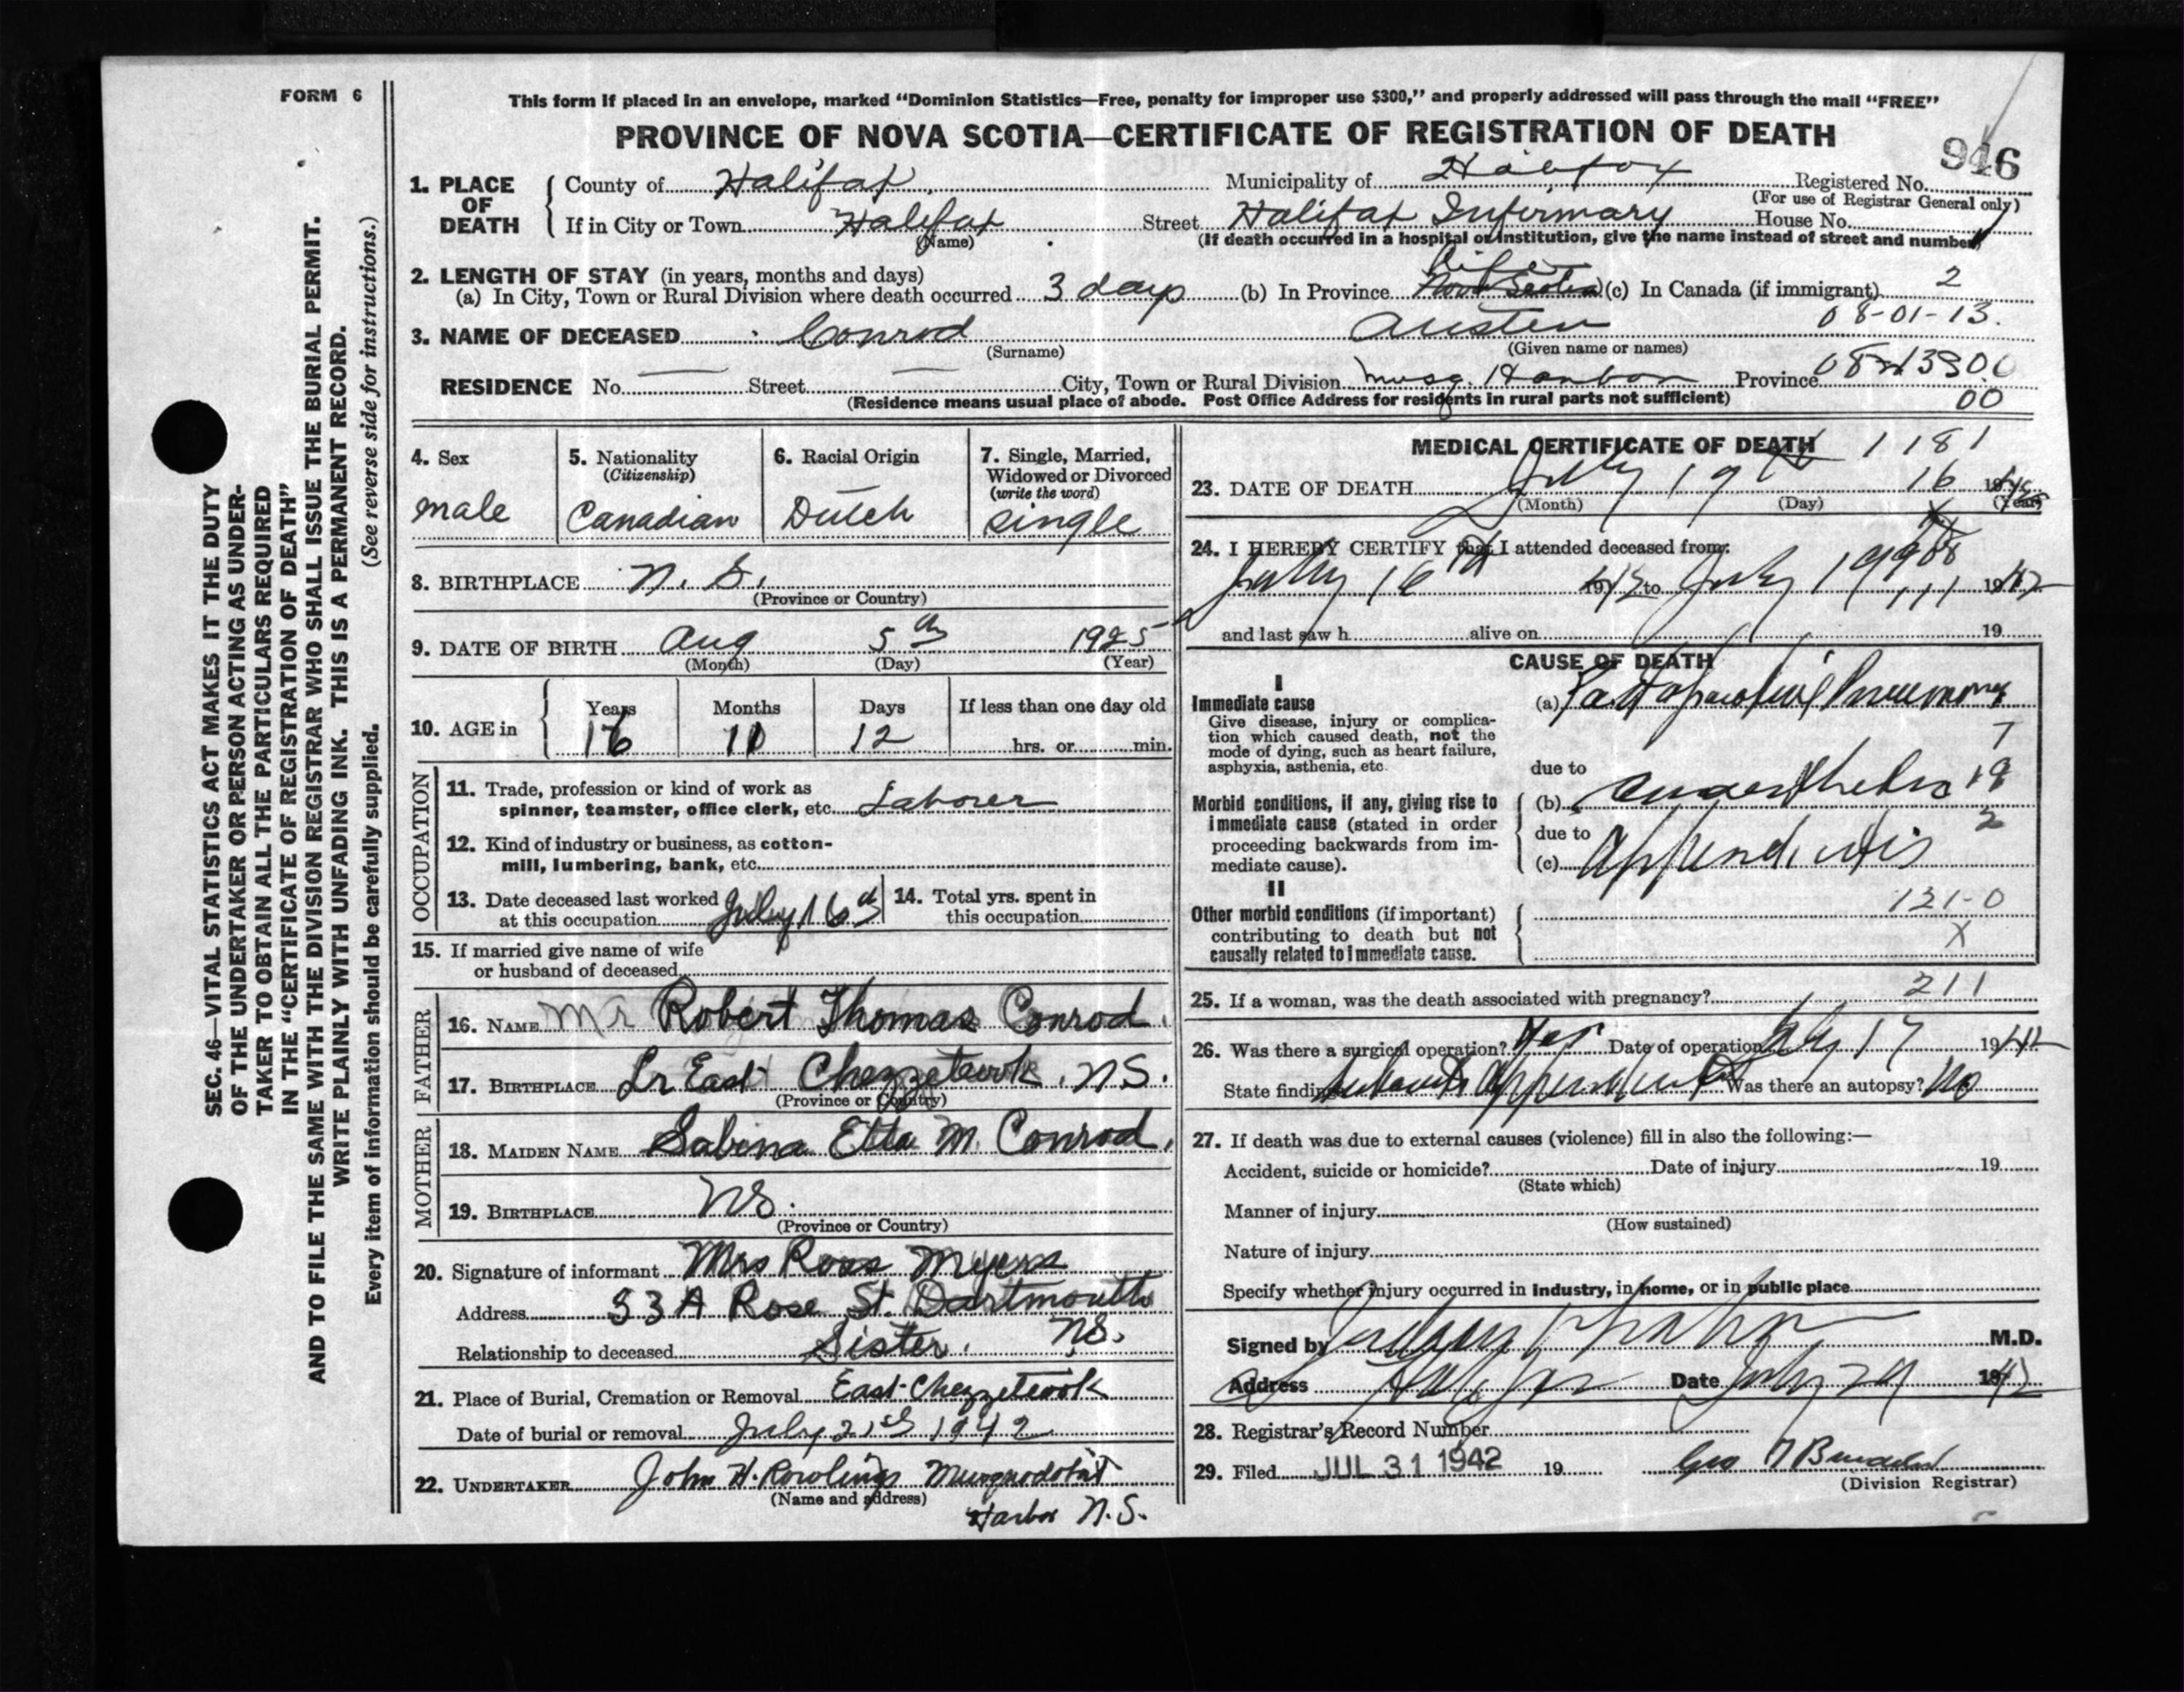 FORM 6
This form if placed in an envelope, marked "Dominion Statistics—Free, penalty for improper use $300," and properly addressed will pass through the mail "FREE"
PROVINCE OF NOVA SCOTIA—CERTIFICATE OF REGISTRATION OF DEATH
946
1. PLACE OF DEATH County of Halifax Municipality of Halifax Registered No.
(For use of Registrar General only)
If in City or Town Halifax Street Halifax Infirmary House No.
(Name) (If death occurred in a hospital or institution, give the name instead of street and number)
2. LENGTH OF STAY (in years, months and days) Life
(a) In City, Town or Rural Division where death occurred 3 days (b) In Province Nova Scotia (c) In Canada (if immigrant) 2
08-01-13.
3. NAME OF DECEASED Conrod Austen
(Surname) (Given name or names)
RESIDENCE No. — Street — City, Town or Rural Division Musq. Harbor Province
(Residence means usual place of abode. Post Office Address for residents in rural parts not sufficient) 00
4. Sex male
5. Nationality (Citizenship) Canadian
6. Racial Origin Dutch
7. Single, Married, Widowed or Divorced (write the word) single
8. BIRTHPLACE N. S.
(Province or Country)
9. DATE OF BIRTH Aug 5th 1925
(Month) (Day) (Year)
10. AGE in Years 16 Months 11 Days 12 If less than one day old hrs. or min.
OCCUPATION
11. Trade, profession or kind of work as
spinner, teamster, office clerk, etc. Laborer
12. Kind of industry or business, as cotton-
mill, lumbering, bank, etc.
13. Date deceased last worked at this occupation July 16th
14. Total yrs. spent in this occupation
15. If married give name of wife
or husband of deceased
FATHER
16. NAME Mr Robert Thomas Conrod.
17. BIRTHPLACE Lr East Chezzetcook. N.S.
(Province or Country)
MOTHER
18. MAIDEN NAME Sabina Etta M. Conrod.
19. BIRTHPLACE N.S.
(Province or Country)
20. Signature of informant Mrs Ross Myers
Address 33 A Rose St. Dartmouth
Relationship to deceased Sister. N.S.
21. Place of Burial, Cremation or Removal East Chezzetcook
Date of burial or removal July 21st 1942
22. UNDERTAKER John H. Rowlings Musquodobit
(Name and address) Harbor N.S.
MEDICAL CERTIFICATE OF DEATH 1181
23. DATE OF DEATH July 19th 16 1942
(Month) (Day) (Year)
24. I HEREBY CERTIFY that I attended deceased from:
July 16th 1942 to July 19 1942
and last saw h alive on 19
CAUSE OF DEATH
I
Immediate cause (a) Postoperative Pneumonia
Give disease, injury or complica-
tion which caused death, not the
mode of dying, such as heart failure,
asphyxia, asthenia, etc.
7
due to
19
Morbid conditions, if any, giving rise to (b) Anaesthesia
immediate cause (stated in order due to 2
proceeding backwards from im-
mediate cause). (c) Appendicitis
II
Other morbid conditions (if important) 121-0
contributing to death but not X
causally related to immediate cause.
25. If a woman, was the death associated with pregnancy? 211
26. Was there a surgical operation? Yes Date of operation July 17 1942
State findings Appendicitis Was there an autopsy? No
27. If death was due to external causes (violence) fill in also the following:—
Accident, suicide or homicide? Date of injury 19
(State which)
Manner of injury
(How sustained)
Nature of injury
Specify whether injury occurred in Industry, in home, or in public place
Signed by M.D.
Address Halifax Date July 29 1942
28. Registrar's Record Number
29. Filed JUL 31 1942 19
(Division Registrar)
SEC. 46—VITAL STATISTICS ACT MAKES IT THE DUTY
OF THE UNDERTAKER OR PERSON ACTING AS UNDER-
TAKER TO OBTAIN ALL THE PARTICULARS REQUIRED
IN THE "CERTIFICATE OF REGISTRATION OF DEATH"
AND TO FILE THE SAME WITH THE DIVISION REGISTRAR WHO SHALL ISSUE THE BURIAL PERMIT.
WRITE PLAINLY WITH UNFADING INK. THIS IS A PERMANENT RECORD.
Every item of information should be carefully supplied. (See reverse side for instructions.)